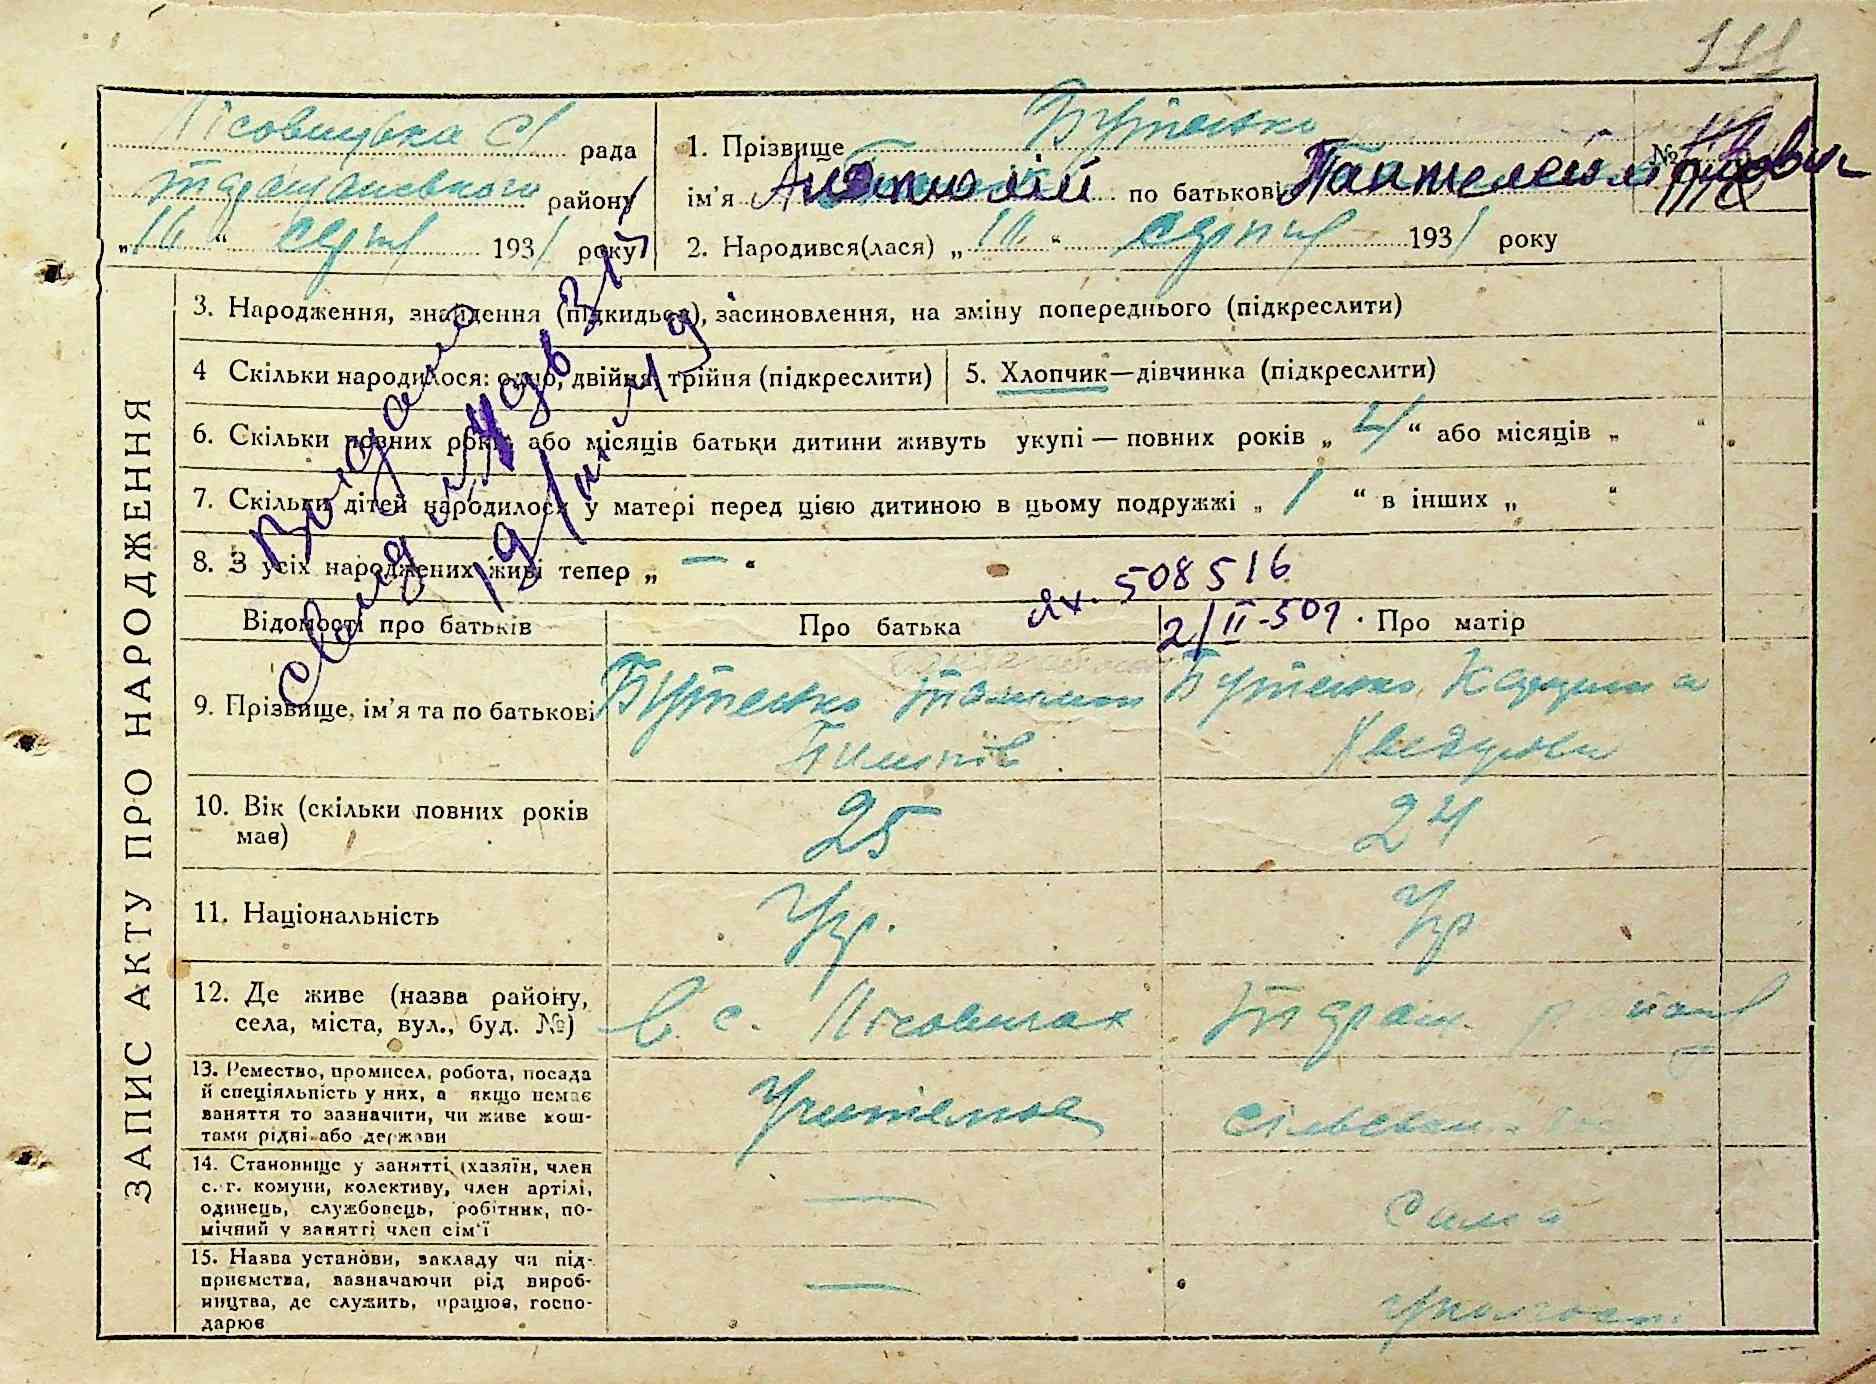 111
Лісовицька С/ рада
Таращанського району
„16“ серпня 1931 року
1. Прізвище Бутенко
№
ім'я Анатолій по батькові Пантелеймонович
2. Народився(лася) „16“ серпня 1931 року
ЗАПИС АКТУ ПРО НАРОДЖЕННЯ
3. Народження, знайдення (підкидька), засиновлення, на зміну попереднього (підкреслити)
4 Скільки народилося: одно, двійня, трійня (підкреслити)
5. Хлопчик—дівчинка (підкреслити)
6. Скільки повних років або місяців батьки дитини живуть укупі — повних років „4“ або місяців „ “
7. Скільки дітей народилося у матері перед цією дитиною в цьому подружжі „1“ в інших „ “
8. З усіх народжених живі тепер „—“
Видано
свид
508516
2/II-50
Відомості про батьків
Про батька
Про матір
9. Прізвище, ім'я та по батькові
Бутенко
Пилипів
Бутенко
10. Вік (скільки повних років має)
25
24
11. Національність
Укр.
Укр
12. Де живе (назва району, села, міста, вул., буд. №)
В с. Лісовичах
Таращ. район
13. Ремество, промисел, робота, посада
й спеціяльність у них, а якщо немає
заняття то зазначити, чи живе кош-
тами рідні або держави
Учителює
14. Становище у занятті (хазяїн, член
с.-г. комуни, колективу, член артілі,
одинець, службовець, робітник, по-
мічний у занятті член сім'ї
—
Сама
15. Назва установи, закладу чи під-
приємства, зазначаючи рід вироб-
ництва, де служить, працює, госпо-
дарює
—